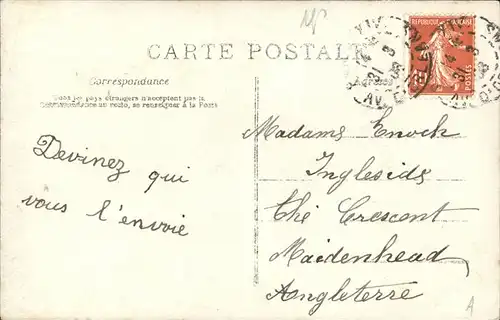 CARTE POSTALE
RÉPUBLIQUE FRANÇAISE
POSTES
Correspondance
Tous les pays étrangers n'acceptent pas la
Correspondance au recto, se renseigner à la Poste
Devinez qui
vous l'envoie
Madame Enoch
Ingleside
The Crescent
Maidenhead
Angleterre
A